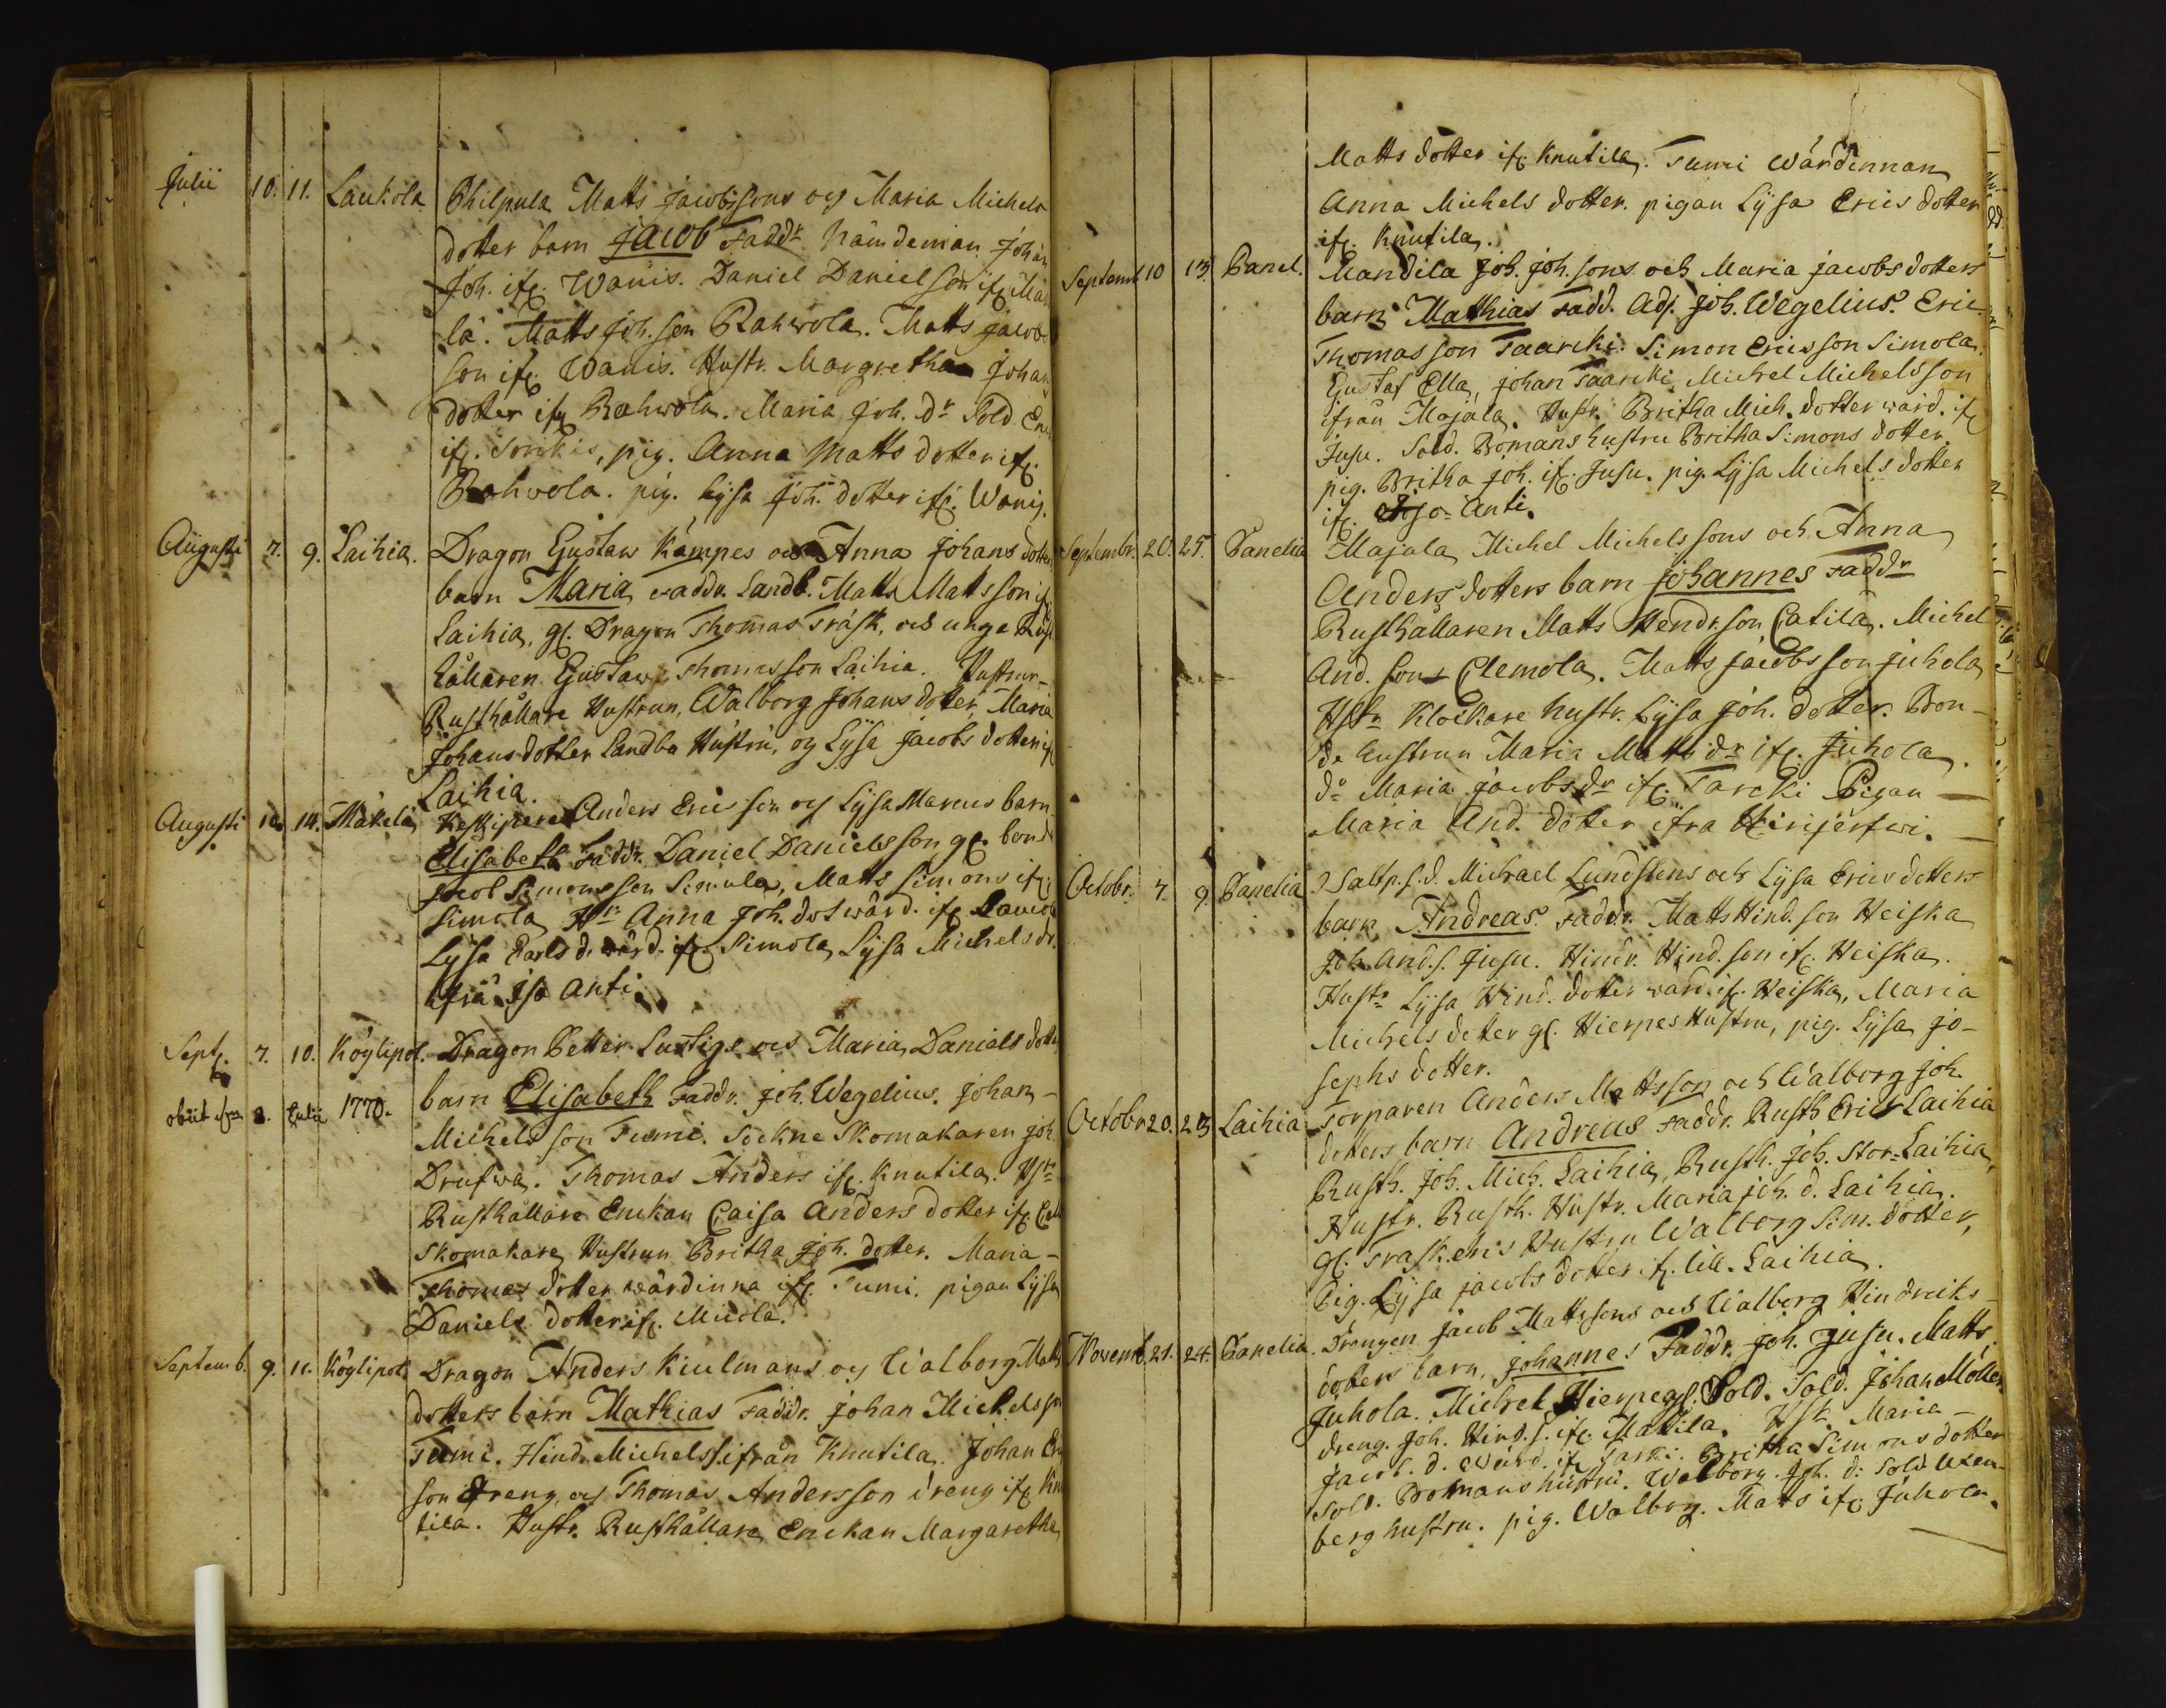 Julii 10. 11. Laukola Philpula Matts Jacobssons och Maria Michels
dotter barn Jacob Faddr. Nämdeman Johan
Joh. ifr. Wanis. Daniel Danielson ifr. Mäke
lä. Matts Joh. son Rahwola. Matts Jacob
son ifr. Wanis. Hustr. Margretha Johan
dotter ifr. Rahwola. Maria Joh. dr Sold.
ifr. Sorrkis, pig. Anna Matts dotter ifr.
Rahwola. pig. Lysa Joh. dotter ifr. Wanis.
Augusti 7. 9. Laihia. Dragon Gustaw Kämpes och Anna Johans dotter
barn Maria faddr. Landb. Matts Mattsson ifr
Laihia, gl. Dragon Thomas Träsk, och unga Rust
hållaren Gustaw Thomasson Laihia. Hustrur-
Rusthållare Hustrun, Walborg Johans dotter, Maria
Johans dotter Landbo Hustru, og Lysa Jacobs dotter ifr
Laihia.
Augusti 10. 14. Mäkelä Keskipere Anders Ericson og Lysa Marcus barn
Elisabeta Faddr. Daniel Danielsson gl. bonde
Jacob Simonsson Simula, Matts Simons ifr.
Simola Hr. Anna Joh. dot wärd. ifr Laucola
Lysa Carls d. wärd. ifr. Simola, Lysa Michels dr.
ifrå Iso Anti.
Sept. 7. 10. Köylipol. Dragon Petter Lustigs och Maria Daniels dotter
obiit 2. Julii 1770. barn Elisabeth Faddr. Joh. Wegelius. Johan-
Michels son Tumi. Sockne Skomakaren Joh.
Drufwa. Thomas Anders ifr. Knutila. Hstr
Rusthållare Enckan Caisa Anders dotter ifr Cat
Skomakare Hustrun Britha Joh. dotter. Maria-
Thomas dotter wärdinna ifr. Tumi. pigan Lysa
Daniels dotter ifr. Micola.
Septemb. 9. 11. Köylipol. Dragon Anders Kiulmans og Walborg Matts
dotters barn Mathias Faddr. Johan Michelsson
Tumi. Hind. Michelss. ifrån Knutila. Johan Eric
son dreng, og Thomas Andersson dreng ifr. Knu
tila. Hustr. Rusthållare Enckan Margaretha
Matts dotter ifr. Knutila. Tumi wärdinnan
Anna Michels dotter. pigan Lysa Erics dotter
ifr. Knutila.
Septemb 10 13. Panel. Mandila Joh. Joh. sons och Maria Jacobs dotters
barn Matthias Fadd. Adj. Joh. Wegelius. Eric
Thomas son Taarcki. Simon Ericsson Simola.
Gustaf Ella, Johan Taarcki, Michel Michelsson
ifrån Majala. Hustr. Britha Mich. dotter wärd. ifr
Jusu. Sold. Bomans hustru Britha Simons dotter.
pig. Britha Joh. ifr. Jusu. pig. Lysa Michels dotter
ifr. Iso-Anti.
Septembr. 20. 25. Panelia Majala Michel Michels sons och Anna
Anders dotters barn Johannes Faddr
Rusthållaren Matts Hendr. son Catila. Michel
And. son Clemola. Matts Jacobs son Juhola
Hstr Klockare hustr. Lysa Joh. dotter. Bon-
de hustrun Maria Matts dr ifr. Juhola.
do Maria Jacobs dr ifr. Tarcki Pigan
Maria And. dotter ifrå Hirijerfwi.
Octobr. 7. 9. Panelia Saltp. s.d. Michael Lundstens och Lysa Erics dotters
barn Andreas Faddr. Matts Hind. son Heiska
Joh. And. s. Jusu. Hindr. Hind. son ifr. Heiska.
Hustr Lysa Hind. dotter wärd. ifr. Heiska, Maria
Michels dotter gl. Hierpes Hustru, pig. Lysa Jo-
sephs dotter.
Octobr 20. 23 Laihia Torparen Anders Mattsson och Walborg Joh.
dotters barn Andreas Faddr. Rusth Eric Laihia
Rusth. Joh. Mich. Laihia, Rusth. Joh. Stor-Laihia,
Hustr. Rusth. Hustr. Maria Joh. d. Laihia.
gl. Traskens Hustru Walborg Sim. dotter,
Pig. Lysa Jacobs dotter ifr. lill. Laihia.
Novemb. 21. 24. Panelia. Drengen Jacob Matts sons och Walborg Hindricks-
dotters barn, Johannes Faddr. Joh. Jusu. Matts
Juhola. Michel Hierpe gl. Sold. Sold. Johan Möller
dreng. Joh. Hind. s. ifr. Mattila. Hstr. Maria-
Jacob. d. wärd. ifr Tarki. Britha Simons dotter
Sold. Bomans hustru. Walborg. Joh. d: Sold Uxen-
berg hustru. pig. Walborg. Matts ifr. Juhola.